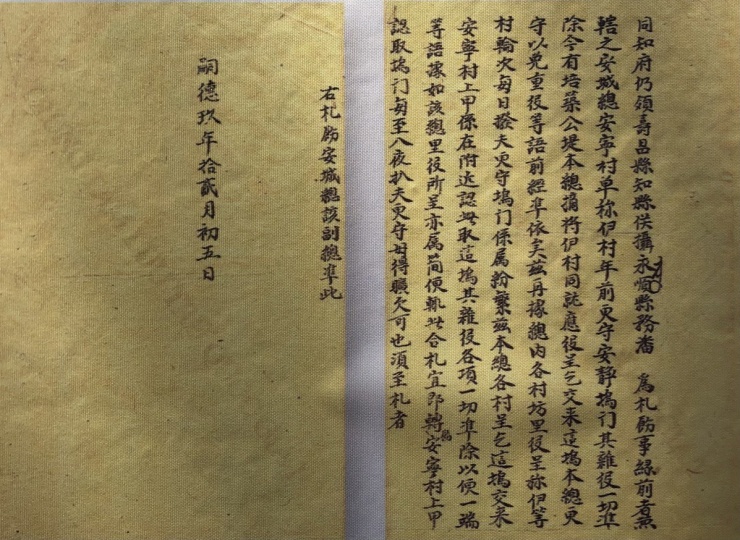 同知府仍領壽昌縣知縣侯攝永順縣務潘　爲札飭事緣前者燕
轄之安城總安寧村单称伊村年前更守安靜塢门其雜役一切準
除今有培築公堤本總誦將伊村同就應役呈乞交来這塢本總更
守以免重役等語前經準依矣茲再據總内各村坊里役呈称伊等
村輪次每日撥夫更守塢门係属紛繁茲本總各村呈乞這塢交来
安寧村上甲係在附近認此取這塢其雜役各項一切準除以便一端
等語據如該總里役所呈亦属简便輒此合札宜即轉飭安寧村上甲
認取塢门每至入夜扒夫更守毋得曠欠可也須至札者
右札飭安城總該副總準此
嗣德玖年拾貳月初五日